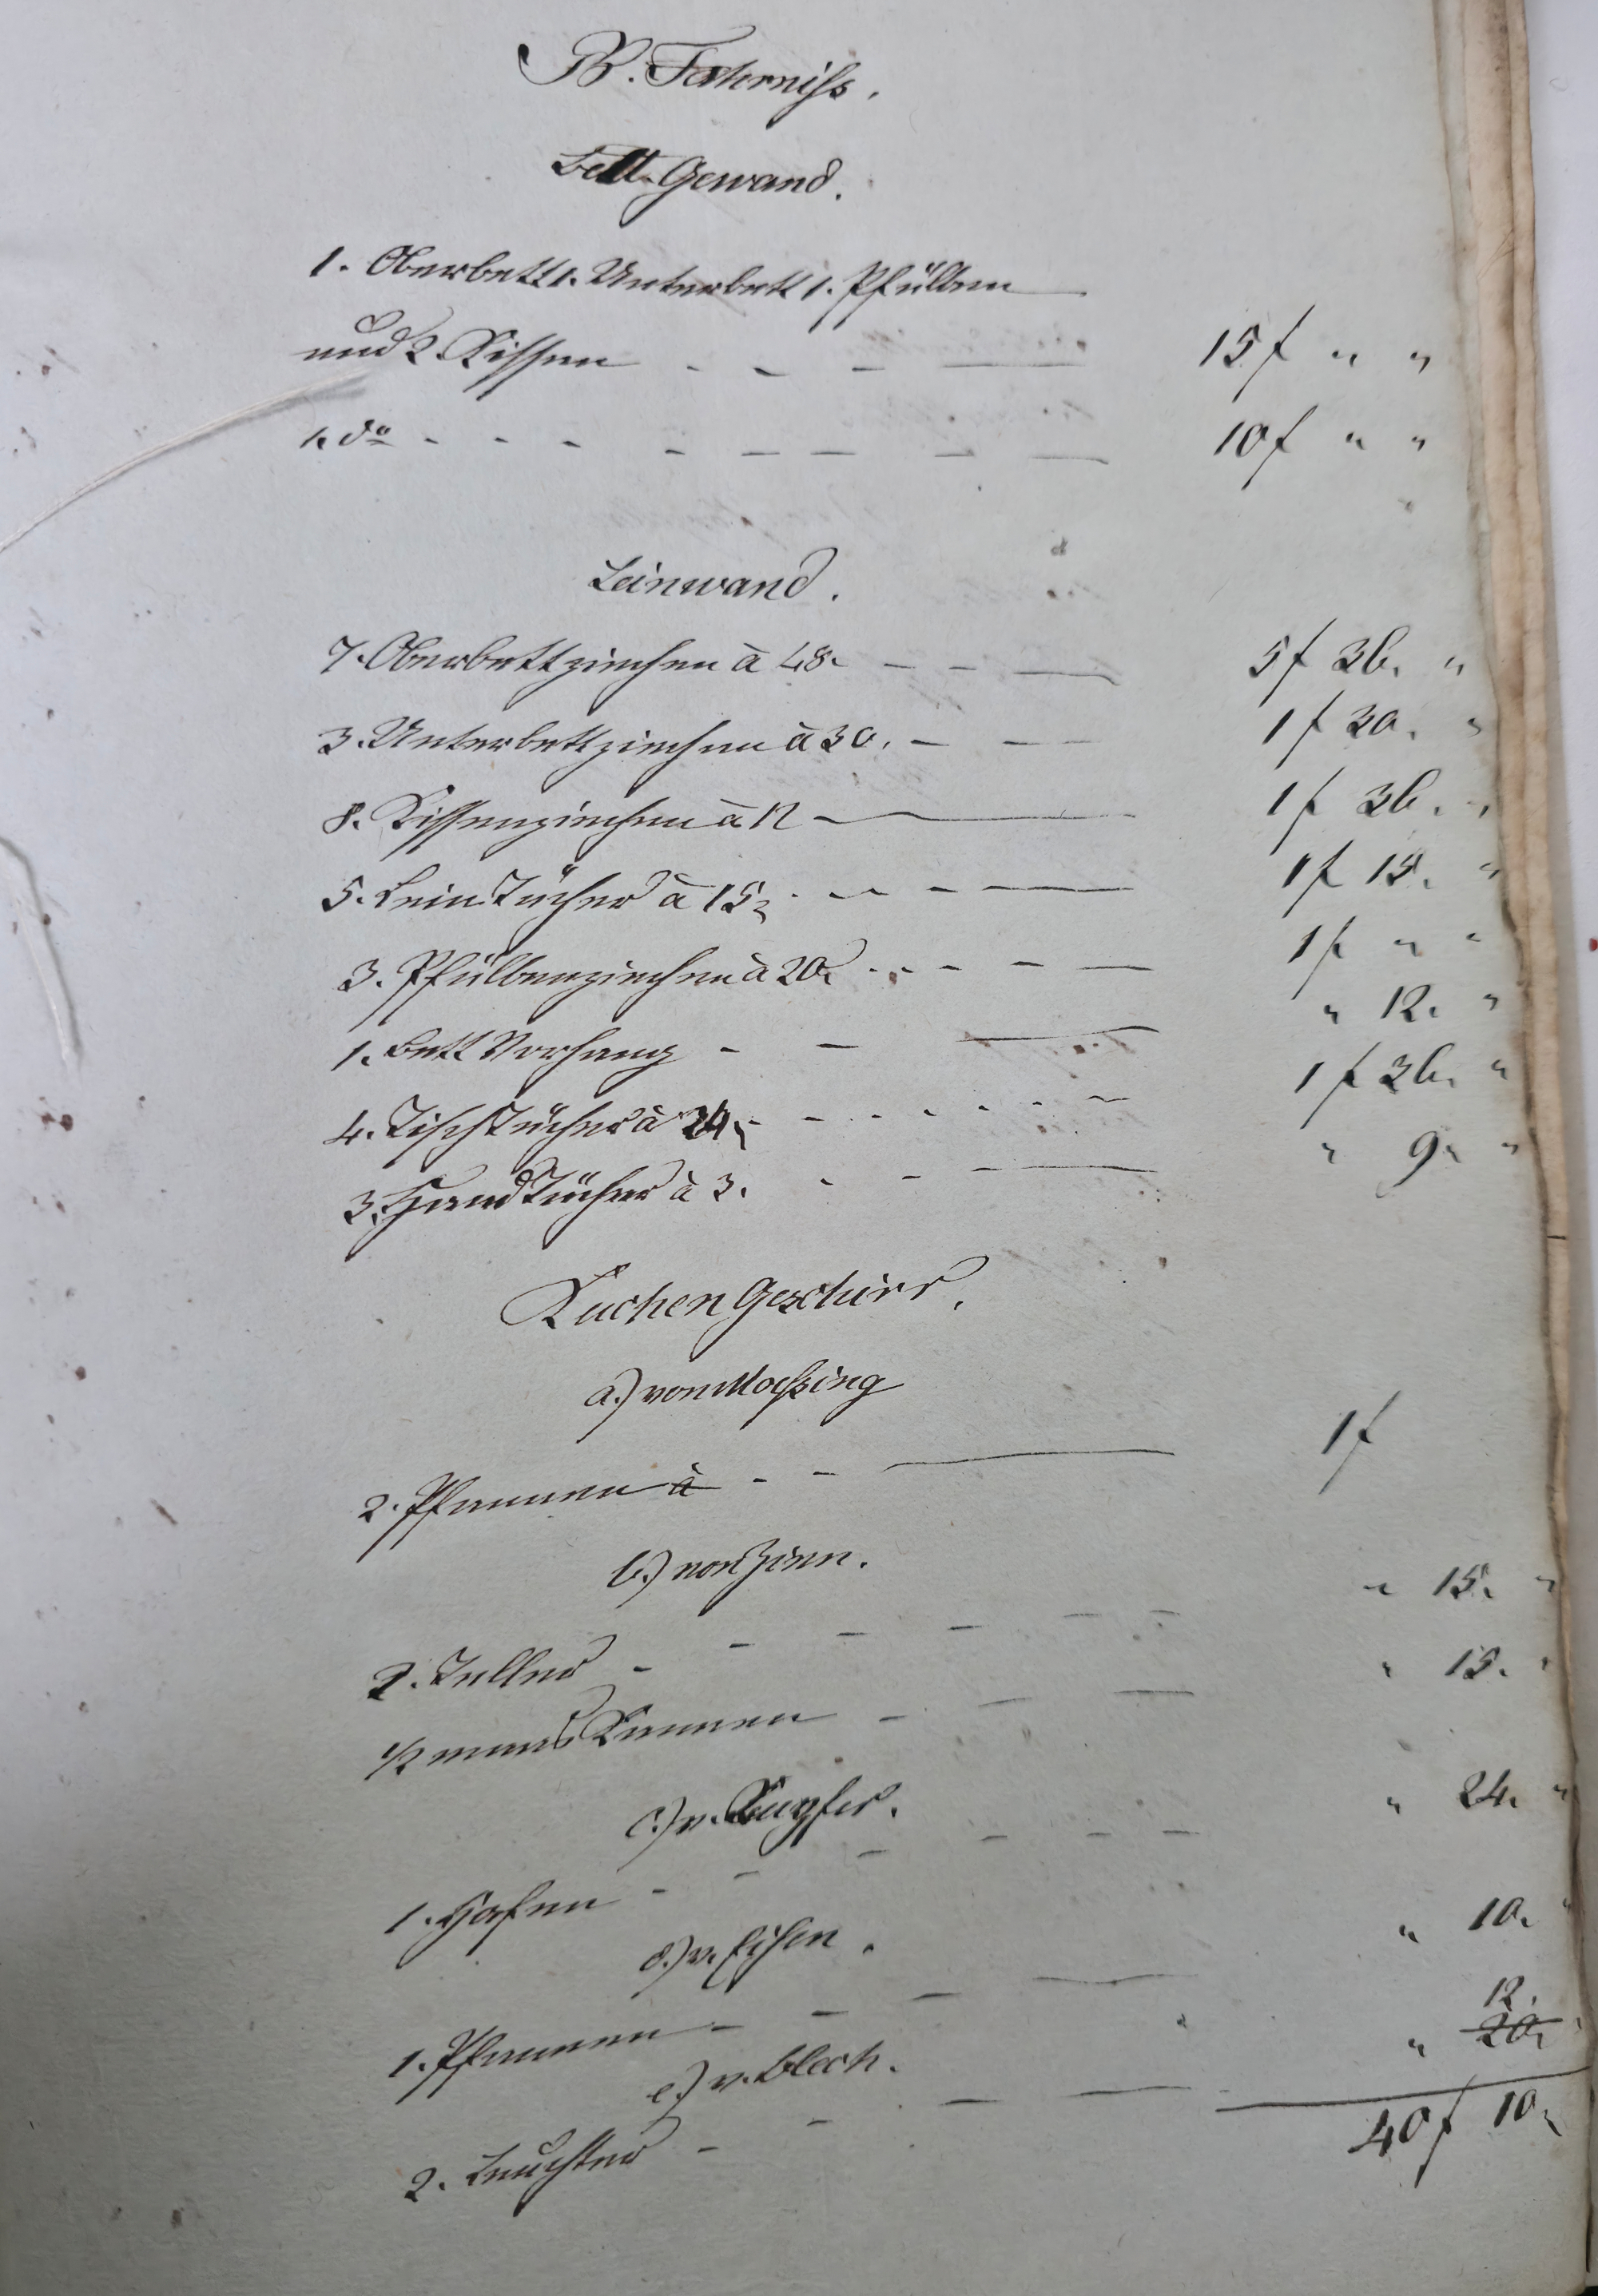 B. Fahrniss.
Bett-Gewand.
1. Oberbett 1. Unterbett 1. Pfülben
und 2 Kissen - - - — 15 f " "
1. do - - - - - - - — 10 f " "
Leinwand.
7. Oberbettziechen à 48. - - — 5 f 36. "
3. Unterbettziechen à 30. - - — 1 f 30. "
8. Kissenziechen à 12 — 1 f 36. "
5. Lein Tücher à 15. - - - — 1 f 15. "
3. Pfülbenziechen à 20. - - - - — 1 f " "
1. Bett Vorhang - - — " 12. "
4. Tisch Tücher à 24. - - - - - - - 1 f 36. "
3. Hand Tücher à 3. - - — " 9. "
Kuchen Geschirr.
a.) von Messing
2. Pfannen à - - — 1 f
b.) von Zinn.
2. Teller - - - - - - " 15. "
1/2 maas Kannen - - — " 15. "
c.) v. Kupfer.
1. Hafen - - - - - - " 24. "
d.) v. Eisen.
1. Pfannen - - - — " 10. "
e.) v. Blech.
12.
2. Leuchter - - - — " 20. "
40 f 10.